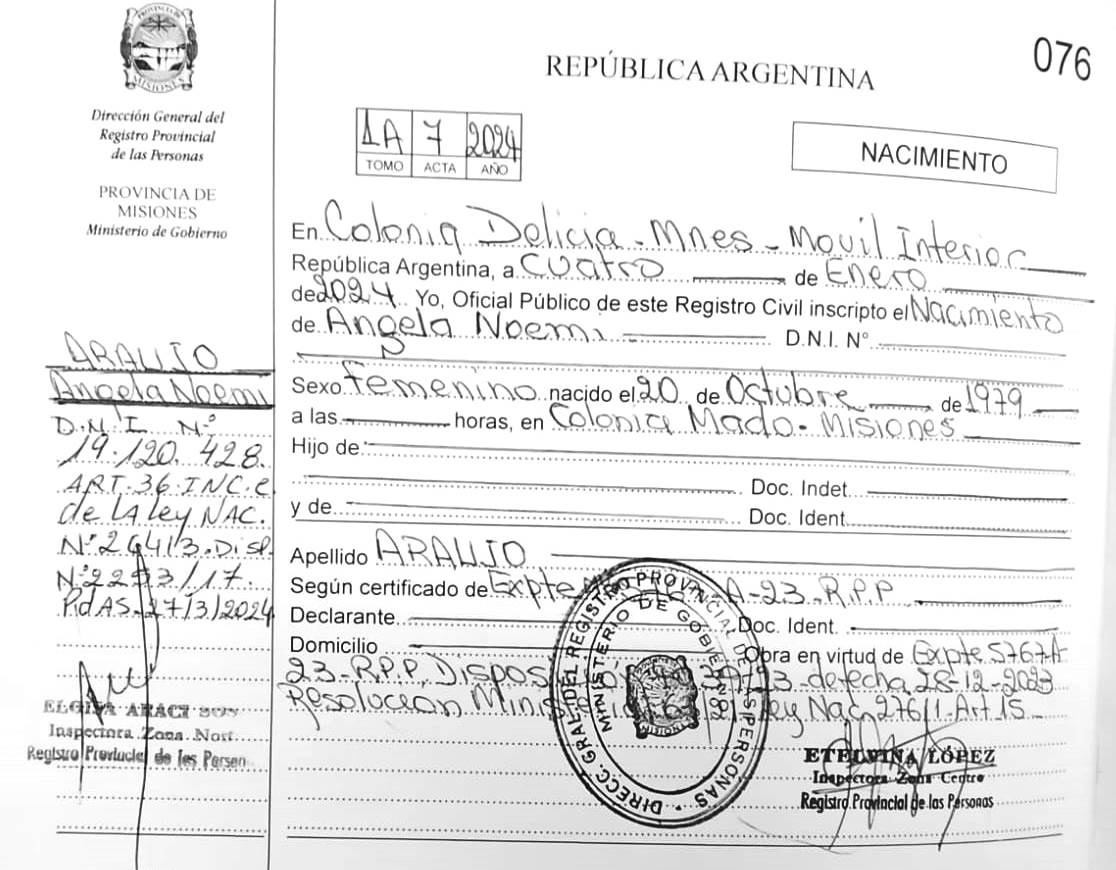 PROVINCIA DE
MISIONES
Dirección General del
Registro Provincial
de las Personas
PROVINCIA DE
MISIONES
Ministerio de Gobierno
ARAUJO
Angela Noemi
D.N.I. Nº
19.120.428.
ART.36.INC.e.
de LA ley NAC.
Nº26413.Disp.
Nº2293/17.
PdAS.27/3/2024
ARACI
Inspectora Zona Nort
Registro Provincial de las Person
076
REPÚBLICA ARGENTINA
1A 7 2024
TOMO ACTA AÑO
NACIMIENTO
En Colonia Delicia - Mnes - Movil Interior
República Argentina, a CUATRO de Enero
de 2024 Yo, Oficial Público de este Registro Civil inscripto el Nacimiento
de Angela Noemi D.N.I. Nº
Sexo Femenino nacido el 20 de Octubre de 1979
a las horas, en Colonia Mado - Misiones
Hijo de
Doc. Indet.
y de Doc. Ident.
Apellido ARAUJO
Según certificado de Expte A-23-R.P.P
Declarante Doc. Ident.
Domicilio Obra en virtud de Expte 5767-A
23-R.P.P, de fecha 28-12-2023
Resolucion Ley Nac. 27611-Art 15
DIRECC. GRAL. DEL REGISTRO PROVINCIAL DE LAS PERSONAS
MINISTERIO DE GOBIERNO
MISIONES
ETELVINA LÓPEZ
Inspectora Zona Centro
Registro Provincial de las Personas